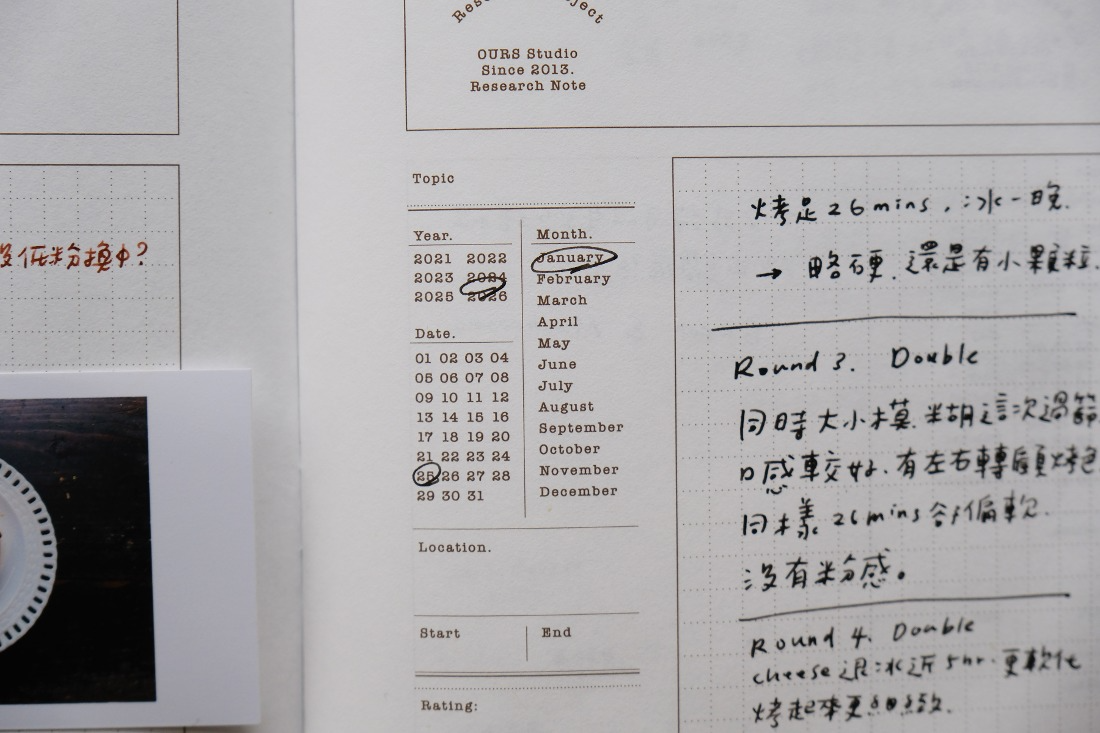 Research Project
OURS Studio
Since 2013.
Research Note
没低粉換中?
Topic
Year.
2021 2022
2023 2024
2025 2026
Date.
01 02 03 04
05 06 07 08
09 10 11 12
13 14 15 16
17 18 19 20
21 22 23 24
25 26 27 28
29 30 31
Month.
January
February
March
April
May
June
July
August
September
October
November
December
Location.
Start
End
Rating:
烤足26mins,冰一晚.
→ 略硬.還是有小顆粒.
Round 3. Double
同時大小模.糊這次過篩
口感較好.有左右轉頭烤色
同樣26mins卻偏軟.
沒有粉感。
Round 4. Double
cheese退冰近5hr.更軟化
烤起來更細緻.